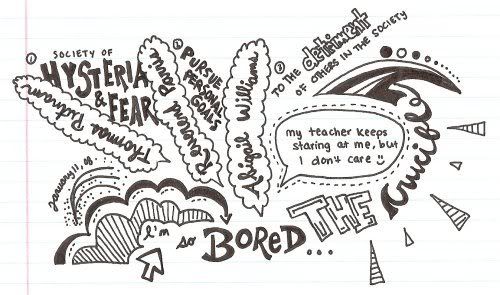 ① SOCIETY OF
HYSTERIA
& FEAR
Thomas Putnam
② PURSUE
PERSONAL
GOALS
Reverend Parris
Abigail Williams
③ TO THE detriment
OF OTHERS IN THE SOCIETY
my teacher keeps
staring at me, but
I don't care
THE
Crucible
January 11, 08
I'm so BORED...